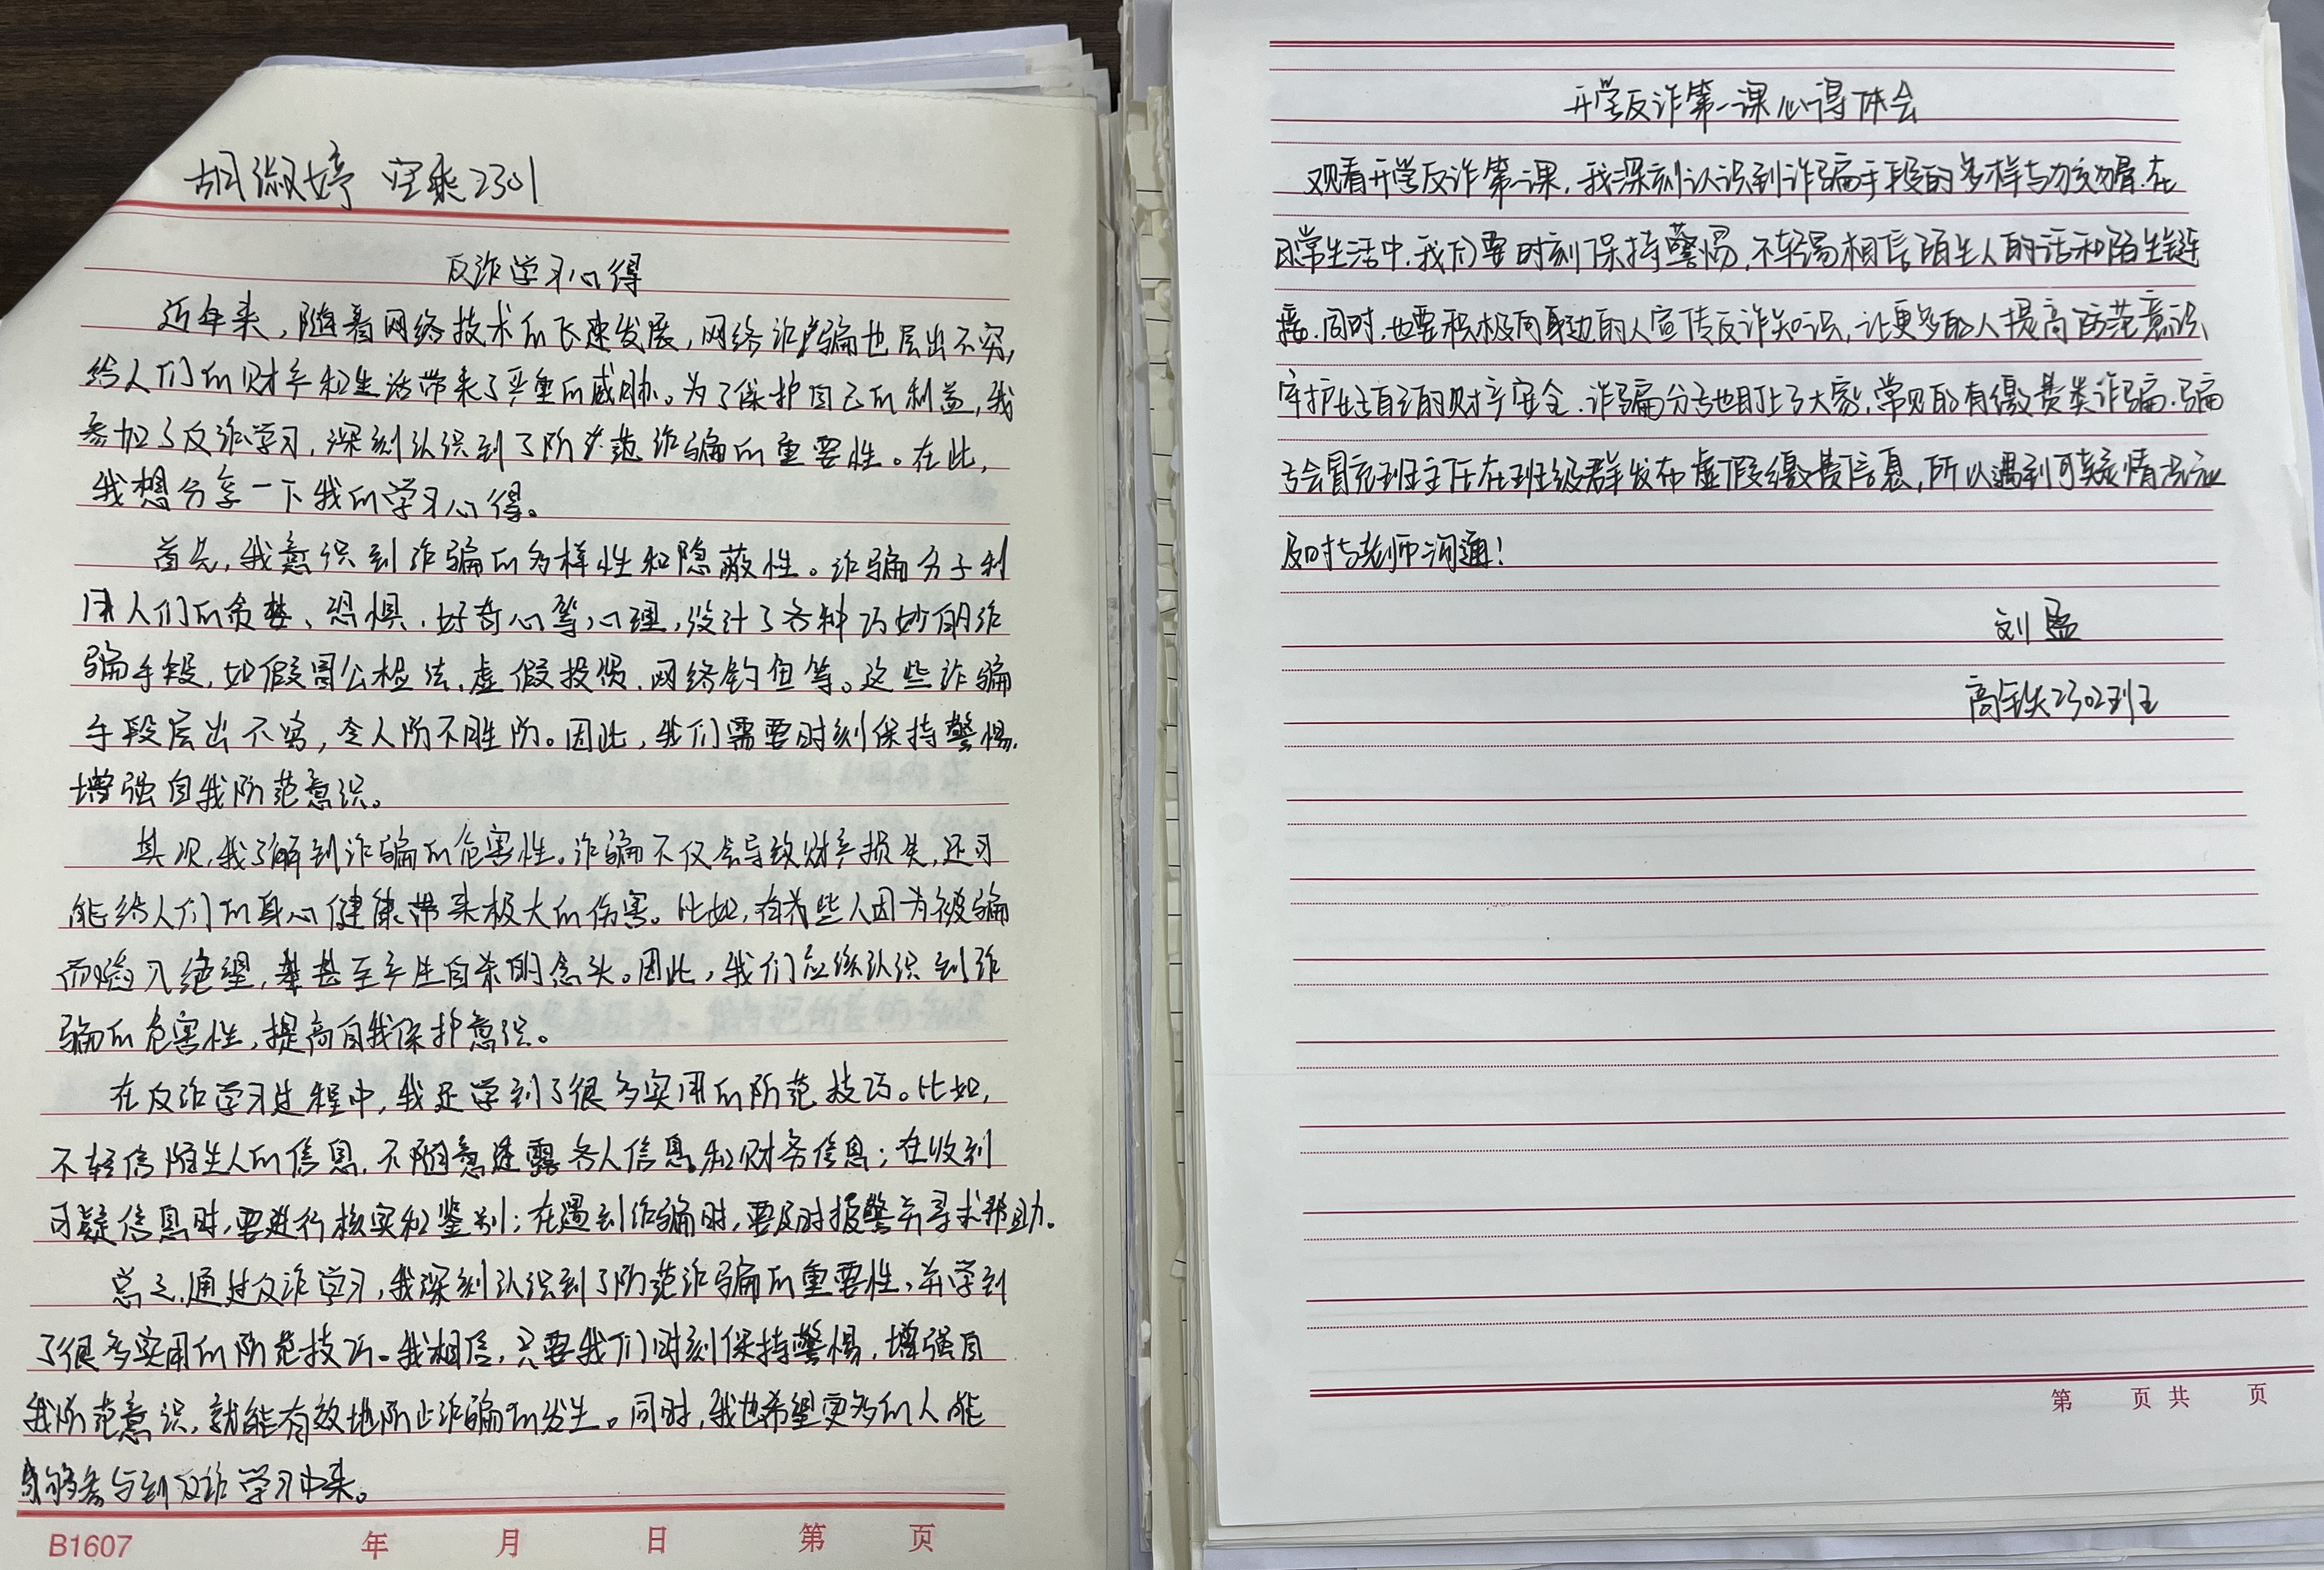 胡淑婷 空乘2301
反诈学习心得
近年来，随着网络技术的飞速发展，网络诈骗也层出不穷，
给人们的财产和生活带来了严重的威胁。为了保护自己的利益，我
参加了反诈学习，深刻认识到了防范诈骗的重要性。在此，
我想分享一下我的学习心得。
首先，我意识到诈骗的多样性和隐蔽性。诈骗分子利
用人们的贪婪、恐惧、好奇心等心理，设计了各种巧妙的诈
骗手段，如假冒公检法、虚假投资、网络钓鱼等。这些诈骗
手段层出不穷，令人防不胜防。因此，我们需要时刻保持警惕，
增强自我防范意识。
其次，我了解到诈骗的危害性。诈骗不仅会导致财产损失，还可
能给人们的身心健康带来极大的伤害。比如，有些人因为被骗
而陷入绝望，甚至产生自杀的念头。因此，我们应该认识到诈
骗的危害性，提高自我保护意识。
在反诈学习过程中，我还学到了很多实用的防范技巧。比如，
不轻信陌生人的信息，不随意透露个人信息和财务信息；在收到
可疑信息时，要进行核实和鉴别；在遇到诈骗时，要及时报警并寻求帮助。
总之，通过反诈学习，我深刻认识到了防范诈骗的重要性，并学到
了很多实用的防范技巧。我相信，只要我们时刻保持警惕，增强自
我防范意识，就能有效地防止诈骗的发生。同时，我也希望更多的人能
够参与到反诈学习中来。
B1607 年 月 日 第 页
开学反诈第一课心得体会
观看开学反诈第一课，我深刻认识到诈骗手段的多样与危害。在
日常生活中，我们要时刻保持警惕，不轻易相信陌生人的话和陌生链
接。同时，也要积极向身边的人宣传反诈知识，让更多的人提高防范意识，
守护好自己的财产安全。诈骗分子也盯上了大家，常见的有缴费类诈骗，骗
子会冒充班主任在班级群发布虚假缴费信息，所以遇到可疑情况应
及时与老师沟通！
刘盈
高铁2302班
第 页 共 页